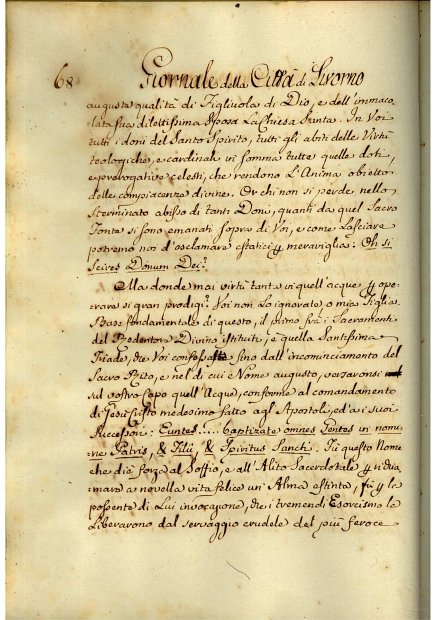 68 Giornale della Città di Livorno
augusta qualità di Figliuola di Dio, e dell'immaco
=lata sua dilettissima Sposa La Chiesa Santa. In Voi
tutti i doni del Santo Spirito, tutti gli abiti delle Virtù
teologiche, e cardinali in somma tutte quelle doti,
e prerogative celesti, che rendono L'Anima obietto
delle compiacenze divine. Or chi non si perde nello
sterminato abisso di tanti Doni, quanti da quel Sacro
Fonte si sono emanati sopra di Voi, e come Lasciare
potremo noi d'esclamare estatici p meraviglia: Oh si
Scires Donum Dei?
Ma donde mai virtù tanta in quell'acque p ope-
rare sì gran prodigi? Voi non Lo ignorate, o mia Figlia.
Base fondamentale di questo, il primo frà i Sacramenti
del Redentore Divino istituiti, è quella Santissima
Triade, che Voi confessaste sino dall'incominciamento del
Sacro Rito, e nel di cui Nome augusto, versaronsi
sul vostro capo quell'Acque, conforme al comandamento
di Gesù Cristo medesimo fatto agl'Apostoli, ed a i suoi
Successori: Euntes.... baptizate omnes Gentes in nomi
ne Patris, & Filii, & Spiritus Sancti. In questo Nome
che dià forza al Soffio, e all'Alito Sacerdotale p richia
mare a novella vita felice un'Alma estinta, fù p la
possente di Lui invocazione, che i tremendi Esorcismi la
Liberarono dal servaggio crudele del più feroce